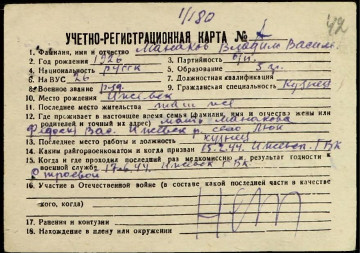 1/180
42
УЧЕТНО-РЕГИСТРАЦИОННАЯ КАРТА №
1. Фамилия, имя и отчество Манаков Владим Васил
2. Год рождения 1926 3. Партийность б/п
4. Национальность русск 5. Образование 3
6. На ВУС 26 7. Должностная квалификация
8. Военное звание 9. Гражданская специальность Кузнец
10. Место рождения Ижевск
11. Последнее место жительства
12. Где проживает в настоящее время семья (фамилия, имя и отчество жены или
родителей и точный адрес) Манакова
Федосья Вас. Ижевск
13. Последнее место работы и должность кузнец
14. Каким райгорвоенкоматом и когда призван 15.2.44. Ижевск. ГВК
15. Когда и где проходил последний раз медкомиссию и результат годности к
военной службе 17.2.44 Ижевск ГВК
строевой
16. Участие в Отечественной войне (в составе какой последней части в качестве
кого, когда) Нет
17. Ранения и контузии
18. Нахождение в плену или окружении